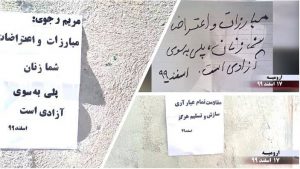 مریم رجوی:
مبارزات و اعتراضات
شما زنان
پلی به سوی
آزادی است
اسفند ۹۹
مبارزات و اعتراضات
شما زنان، پلی به سوی
آزادی است. اسفند ۹۹
ارومیه
۱۷ اسفند ۹۹
مقاومت تمام عیار آری
سازش و تسلیم هرگز
اسفند ۹۹
ارومیه
۱۷ اسفند ۹۹